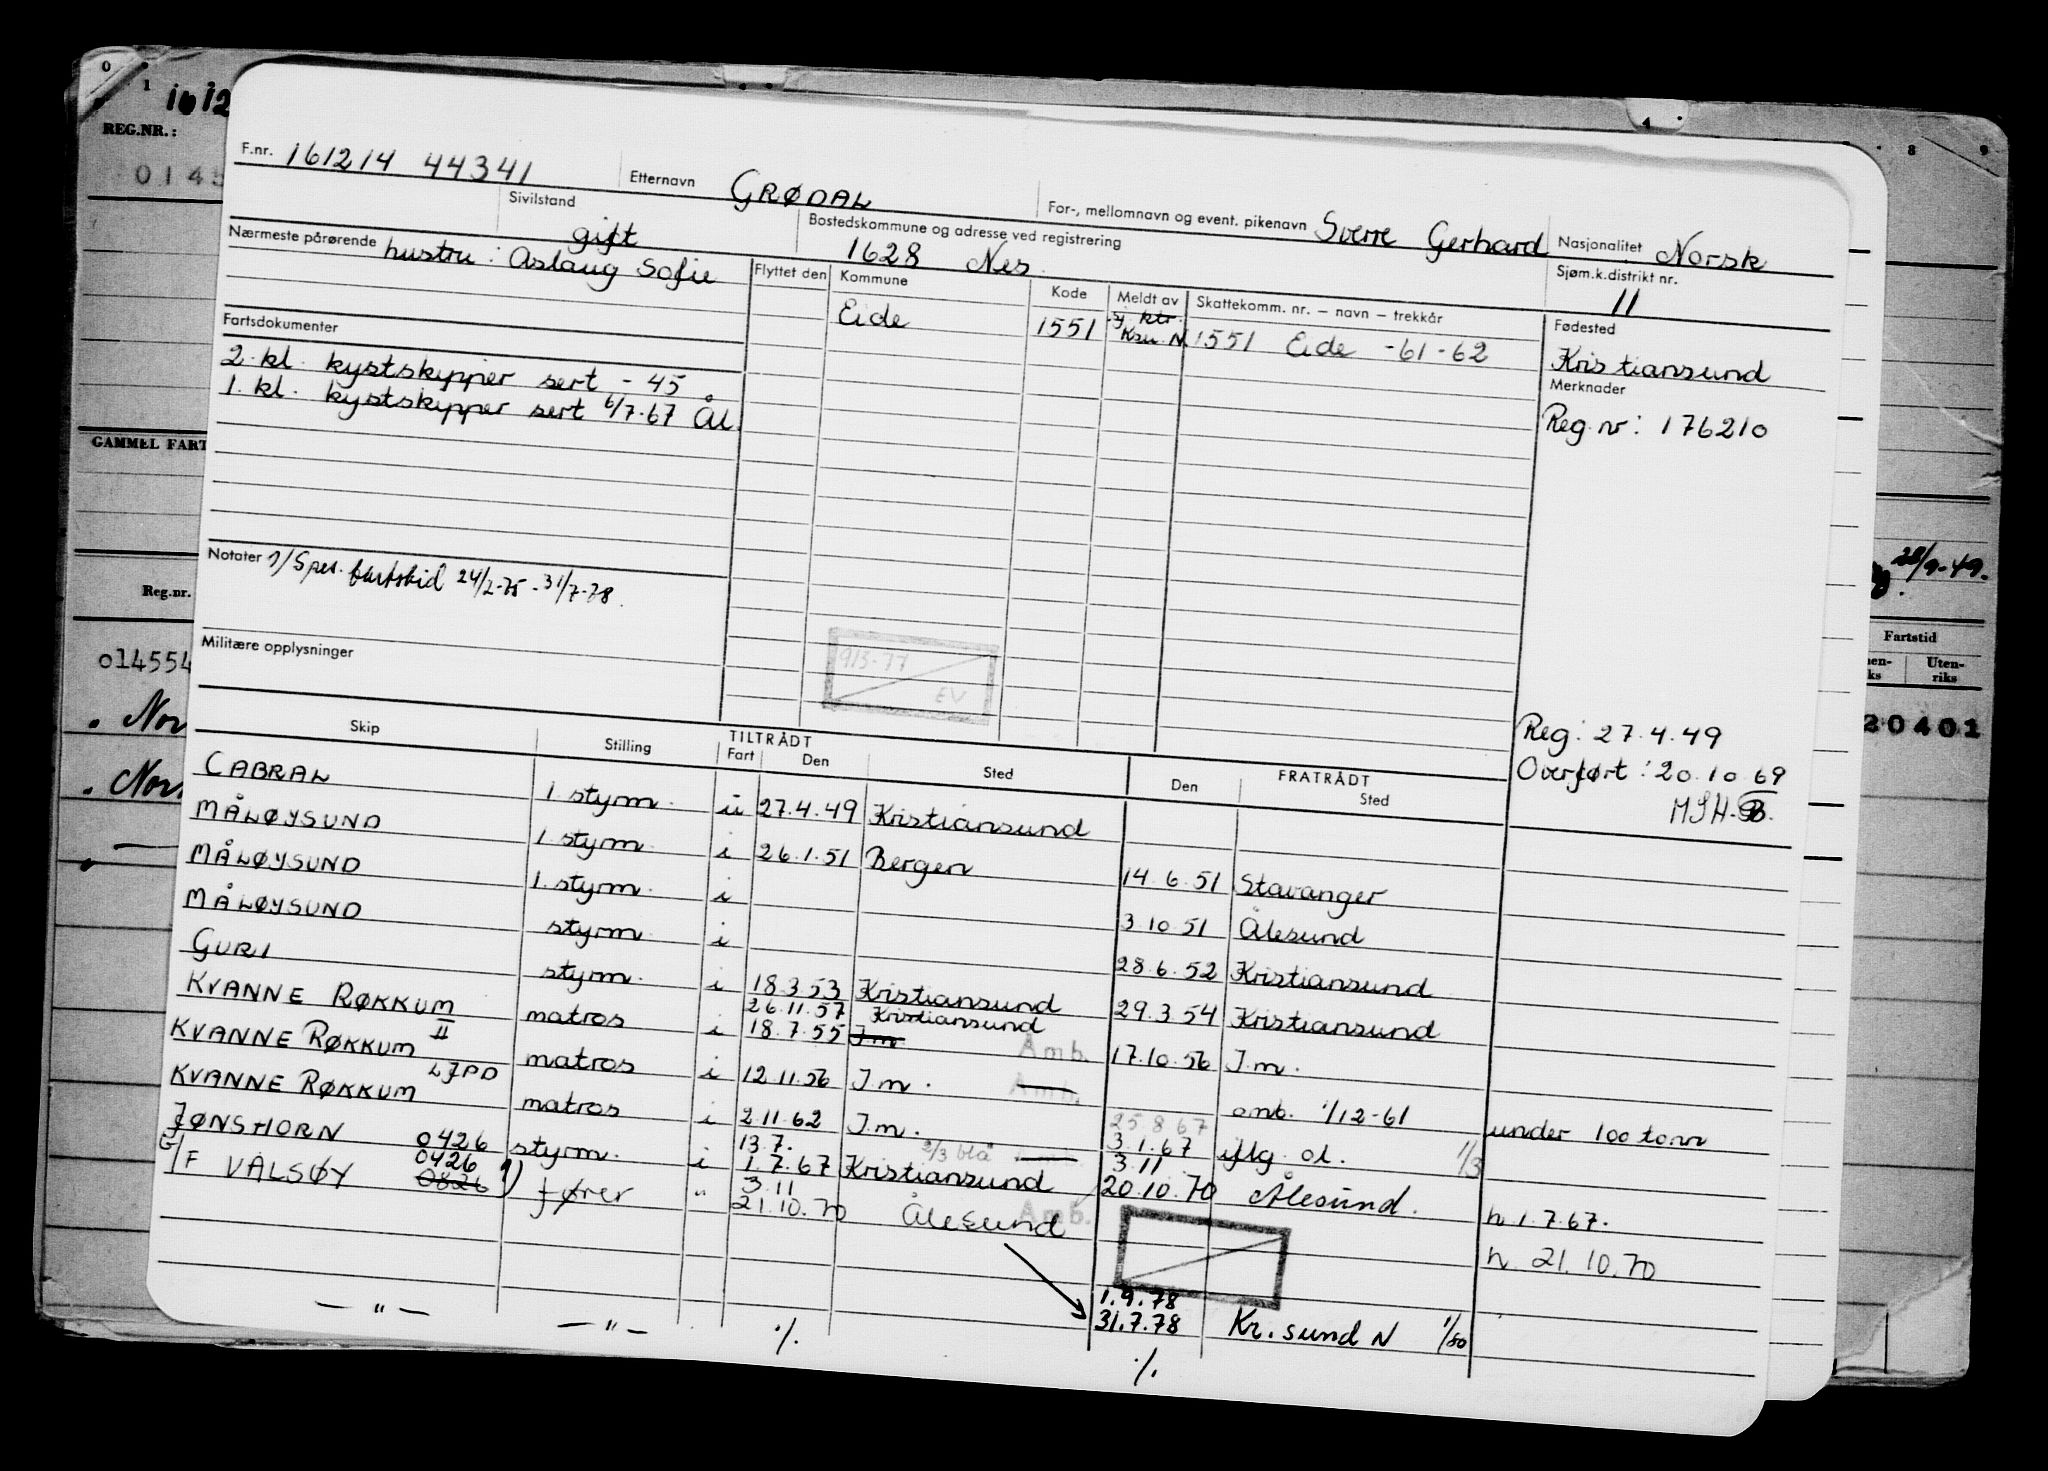 0 1 4 8 9
1612
REG.NR.:
0145
F.nr. 161214 44341 Etternavn GRØDAL For-, mellomnavn og event. pikenavn Sverre Gerhard Nasjonalitet Norsk
Sivilstand gift Bostedskommune og adresse ved registrering 1628 Nes Sjøm.k.distrikt nr. 11
Nærmeste pårørende hustru: Aslaug Sofie
Flyttet den Kommune Kode Meldt av Skattekomm. nr. — navn — trekkår Fødested
Eide 1551 Sj. ktr. Ksu. N. 1551 Eide -61-62 Kristiansund
Fartsdokumenter
2. kl. kystskipper sert - 45
1. kl. kystskipper sert 6/7.67 Ål.
Merknader
Reg. nr: 176210
GAMMEL FART
Notater 1) Spes. fartstid 24/2-75 - 31/7-78.
28/9-49.
Reg.nr.
Militære opplysninger
913-77
EV
Fartstid
Uten-
riks
014554
20401
Reg: 27.4.49
Overført: 20.10.69
MSH-B.
Skip Stilling TILTRÅDT FRATRÅDT
Fart Den Sted Den Sted
CABRAL 1. styrm. u 27.4.49 Kristiansund
MÅLØYSUND 1. styrm. i 26.1.51 Bergen 14.6.51 Stavanger
MÅLØYSUND 1. styrm. i 3.10.51 Ålesund
MÅLØYSUND styrm. i 28.6.52 Kristiansund
GURI styrm. i 18.3.53 Kristiansund 29.3.54 Kristiansund
26.11.57 Kristiansund
KVANNE RØKKUM matros i 18.7.55 I.m. Amb. 17.10.56 I.m.
KVANNE RØKKUM II matros i 12.11.56 I.m. Amb. omb. 1/12-61 under 100 tonn
KVANNE RØKKUM LJPD matros i 2.11.62 I.m. 25.8.67 3.1.67 iflg. ol. 1/3
13.7. 2/3 blå 3.11
JØNSHORN 0426 styrm. i 1.7.67 Kristiansund 20.10.70 Ålesund. h 1.7.67.
3.11
G/F VÅLSØY 0426 0826 1) fører " 21.10.70 Ålesund Amb. h 21.10.70
1.9.78
— " — — " — ·/. 31.7.78 Kr.sund N 1/80
·/.